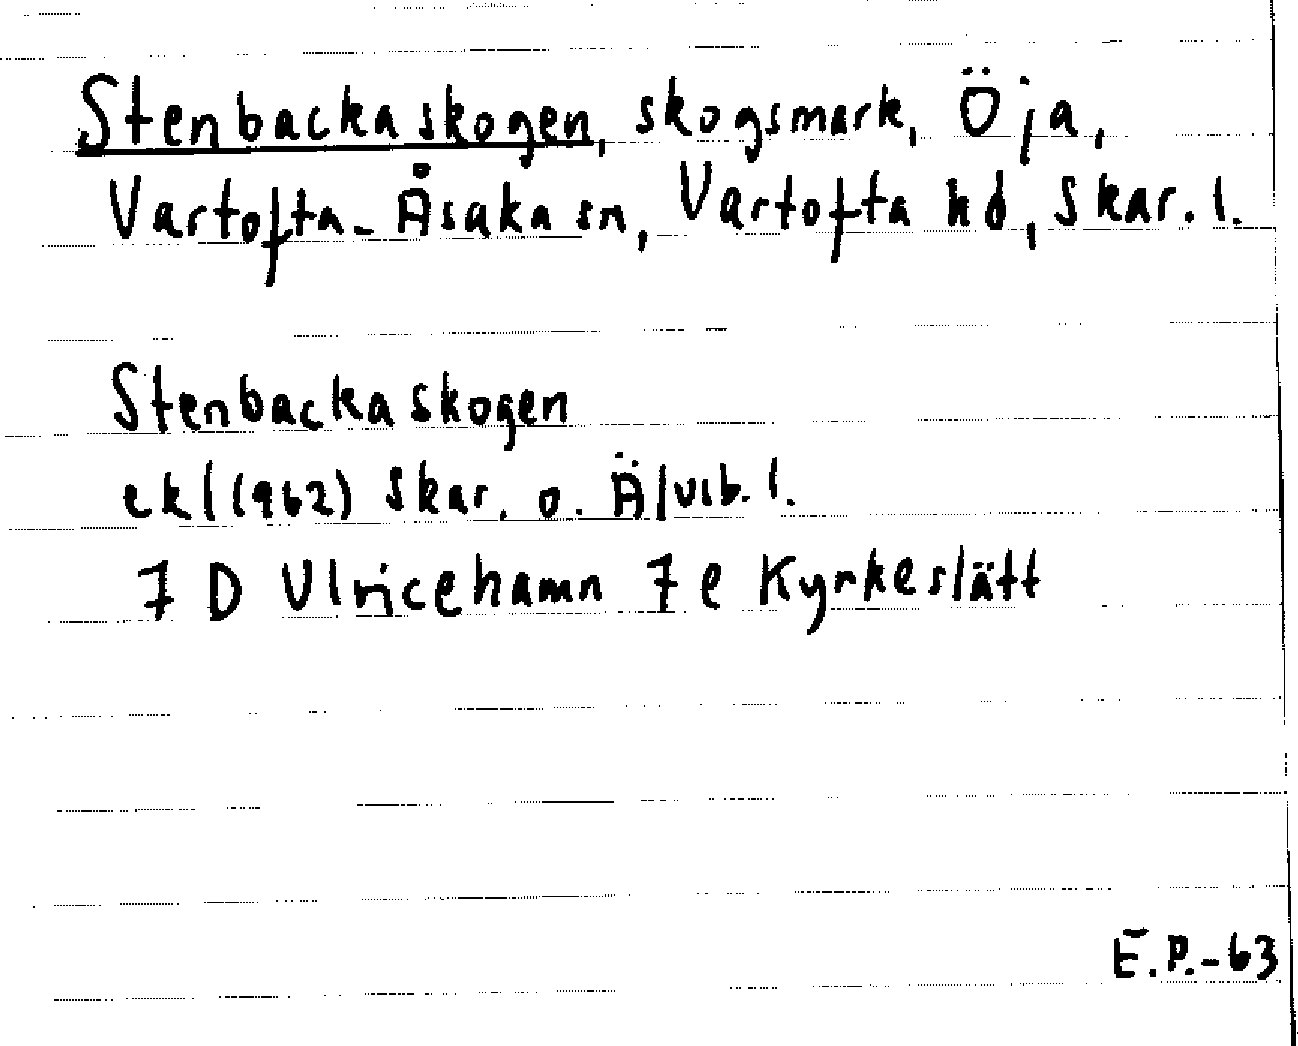 Stenbackaskogen, skogsmark, Öja,
Vartofta-Åsaka sn, Vartofta hd, Skar. l.
Stenbackaskogen
ekl (962) Skar. o. Älvsb. l.
7 D Ulricehamn 7 e Kyrkeslätt
E.P.-63